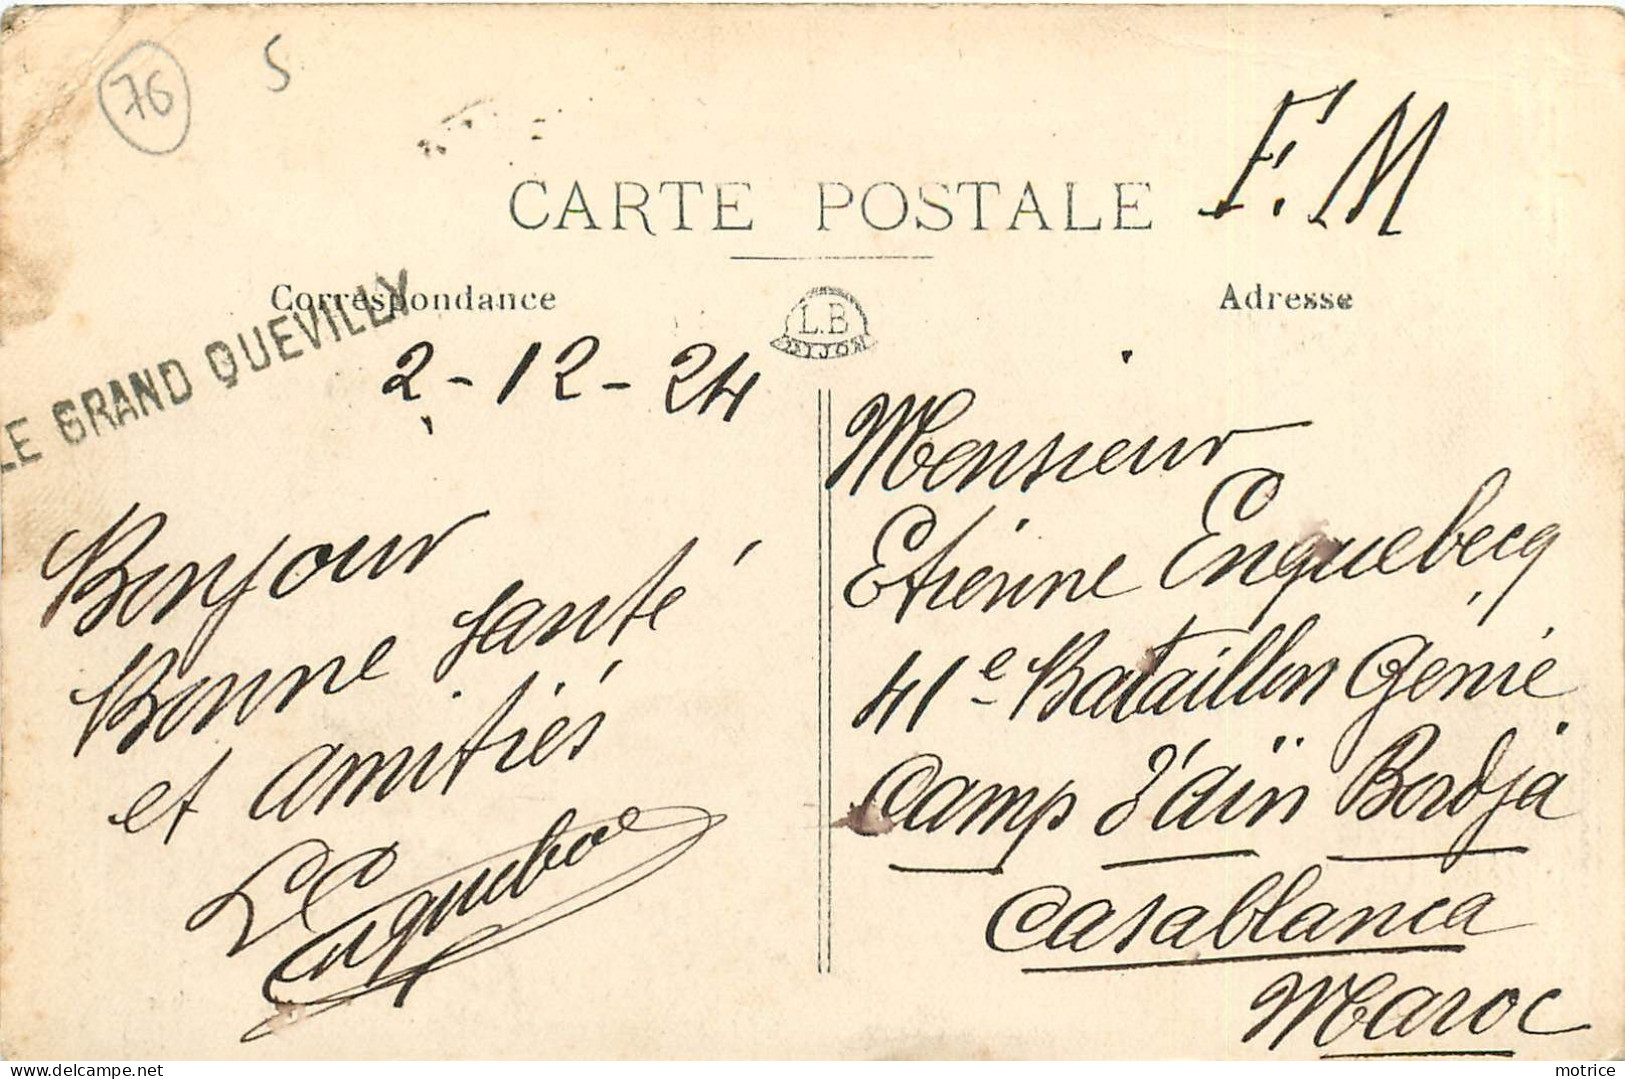 76
5
F. M
CARTE POSTALE
Correspondance
Adresse
L.B
DIJON
LE GRAND QUEVILLY
2-12-24
Bonjour
Bonne santé
et amitiés
Monsieur
Etienne Enquebecq
41e Bataillon Génie
Camp d'aïn Bordja
Casablanca
Maroc
delcampe.net
matrice